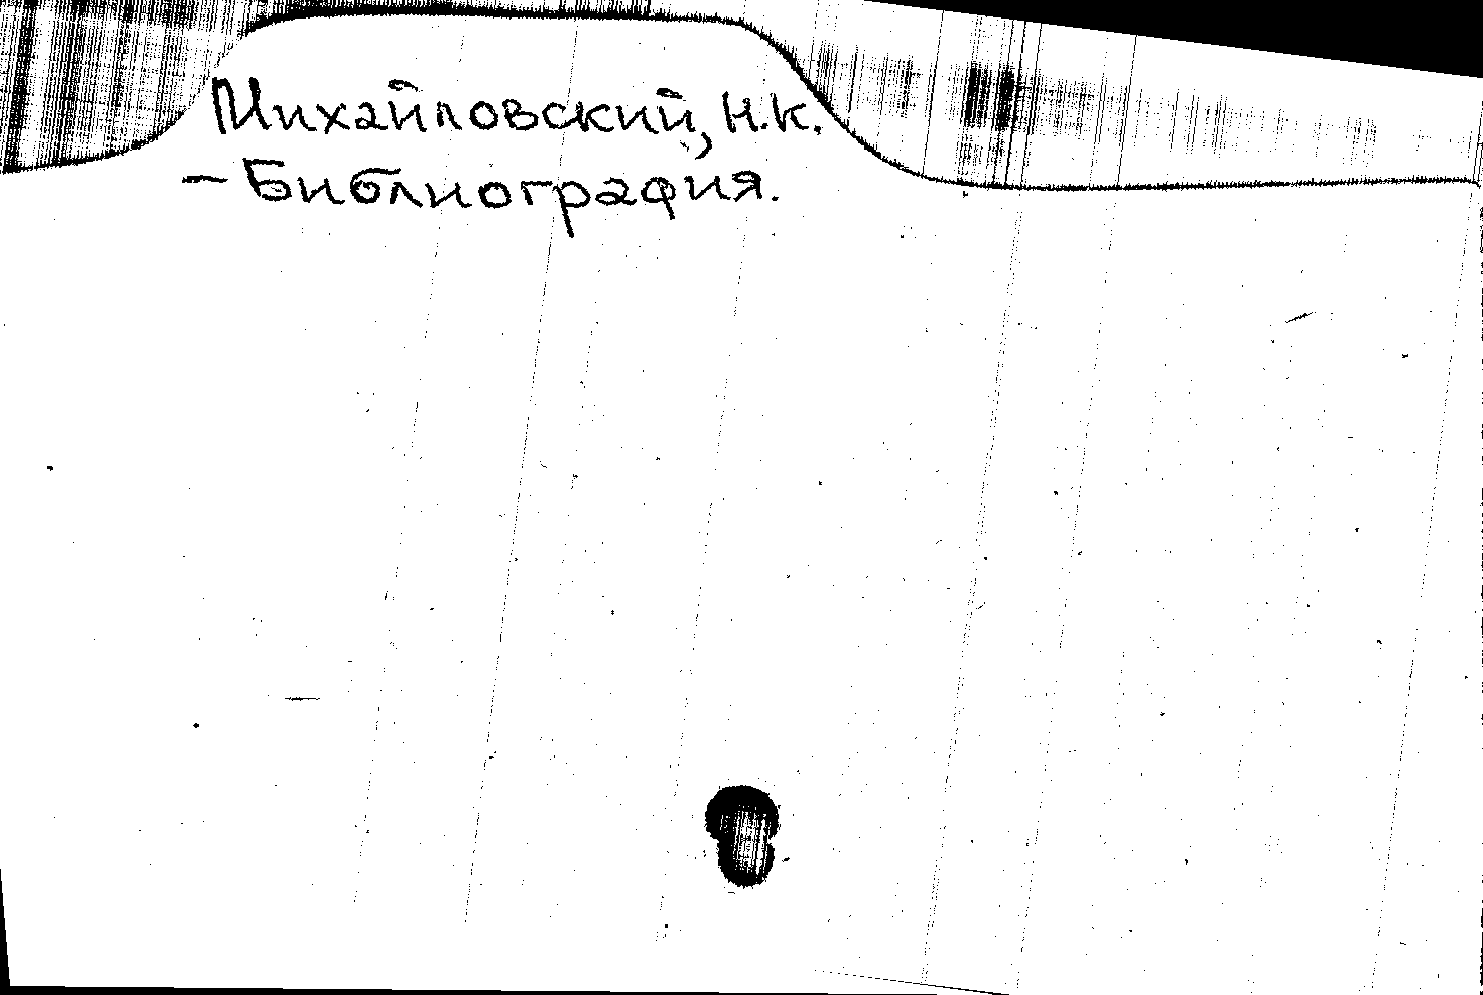 Михайловский, Н.К.
- Библиография.